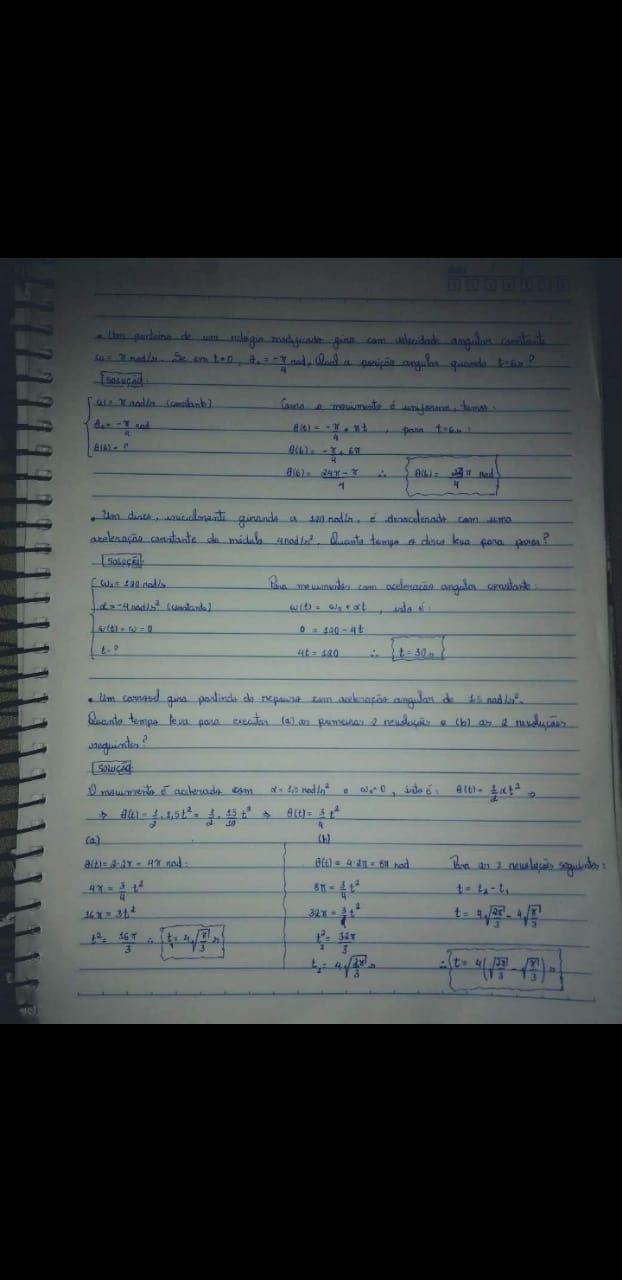 • Um ponteiro de um relógio modificado gira com velocidade angular constante
ω = π rad/s. Se em t=0, θ₀ = -π/4 rad, Qual a posição angular quando t=6s?
SOLUÇÃO:
ω = π rad/s (constante) Como o movimento é uniforme, temos:
θ₀ = -π/4 rad θ(t) = -π/4 + πt, para t=6s:
θ(6) = ? θ(6) = -π/4 + 6π
θ(6) = 24π - π/4 ∴ θ(6) = 23/4 π rad
• Um disco, inicialmente girando a 120 rad/s, é desacelerado com uma
aceleração constante de módulo 4 rad/s². Quanto tempo o disco leva para parar?
SOLUÇÃO:
ω₀ = 120 rad/s Para movimentos com aceleração angular constante:
α = -4 rad/s² (constante) ω(t) = ω₀ + αt, isto é:
ω(t) = ω = 0 0 = 120 - 4t
t = ? 4t = 120 ∴ t = 30s
• Um carrosel gira partindo do repouso com aceleração angular de 1,5 rad/s².
Quanto tempo leva para executar (a) as primeiras 2 revoluções e (b) as 2 revoluções
seguintes?
SOLUÇÃO:
O movimento é acelerado com α = 1,5 rad/s² e ω₀=0, isto é: θ(t) = 1/2 αt² ⇒
⇒ θ(t) = 1/2 · 1,5t² = 1/2 · 15/10 t² ⇒ θ(t) = 3/4 t²
(a) (b)
θ(t) = 2·2π = 4π rad: θ(t) = 4·2π = 8π rad Para as 2 revoluções seguintes:
4π = 3/4 t² 8π = 3/4 t² t = t₂ - t₁
16π = 3t² 32π = 3t² t = 4√2π/3 - 4√π/3
t² = 16π/3 ∴ t₁ = 4√π/3 s t² = 32π/3
t₂ = 4√2π/3 s ∴ t = 4(√2π/3 - √π/3) s